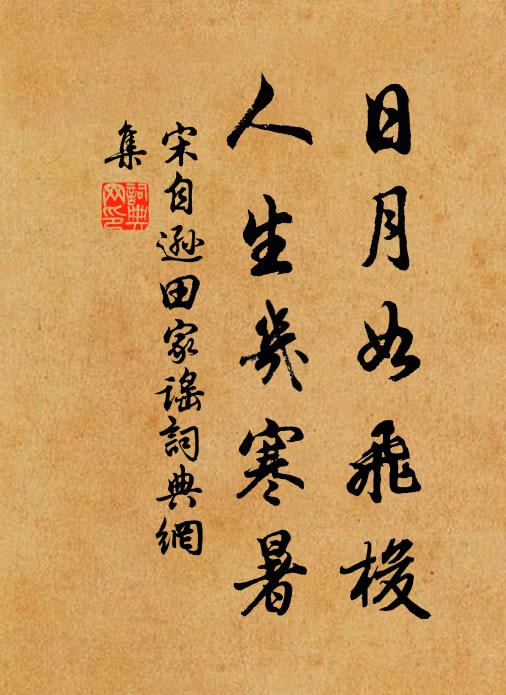 日月如飛梭
人生幾寒暑
宋自遜田家謠詞典網
集
詞典网印